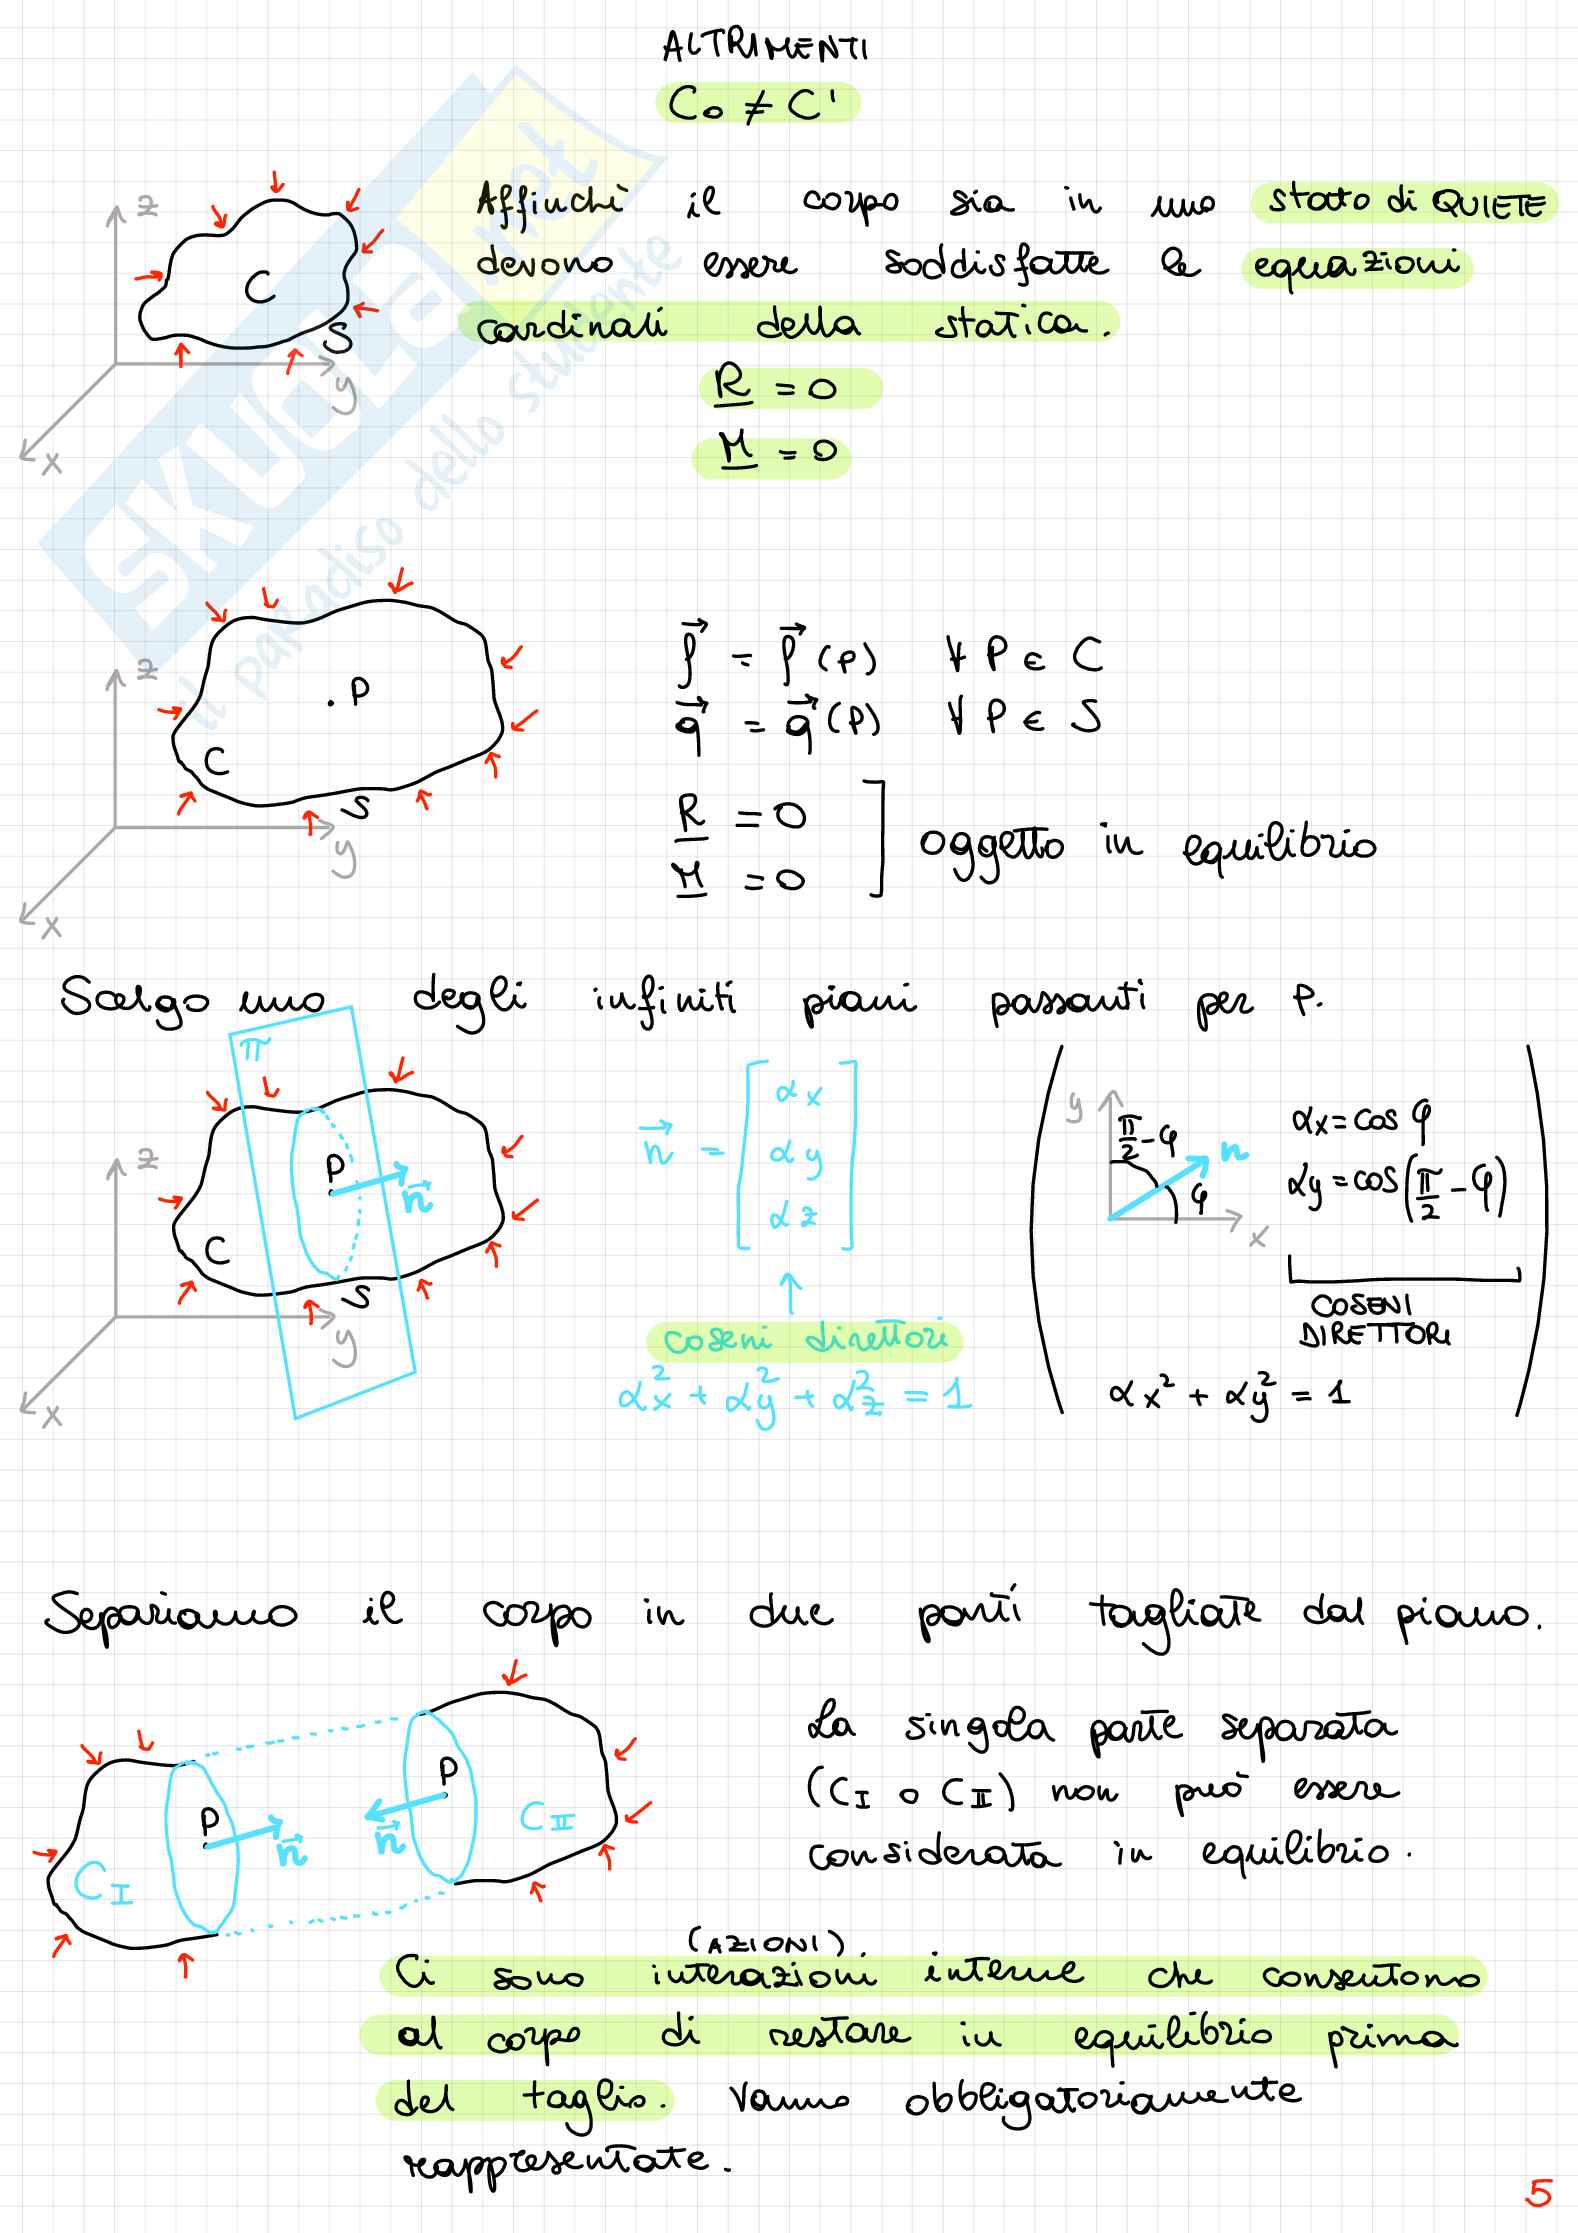 ALTRIMENTI
C₀ ≠ C'
Affinchè il corpo sia in uno stato di QUIETE
devono essere soddisfatte le equazioni
cardinali della statica.
R = 0
M = 0
z
C
S
y
x
SKUOLa.net
il paradiso dello studente
z
. P
C
S
y
x
f⃗ = f⃗ (P) ∀ P ∈ C
q⃗ = q⃗ (P) ∀ P ∈ S
R = 0
M = 0
] oggetto in equilibrio
Scelgo uno degli infiniti piani passanti per P.
π
z
P
n⃗
C
S
y
x
n⃗ = [ αx
αy
αz ]
↑
coseni direttori
αx² + αy² + αz² = 1
y
π/2 - φ
n
φ
x
αx = cos φ
αy = cos (π/2 - φ)
COSENI
DIRETTORI
αx² + αy² = 1
Separiamo il corpo in due parti tagliate dal piano.
P
n⃗
C I
P
n⃗
C II
La singola parte separata
(C I o C II) non può essere
considerata in equilibrio.
(AZIONI)
Ci sono interazioni interne che consentono
al corpo di restare in equilibrio prima
del taglio. Vanno obbligatoriamente
rappresentate.
5